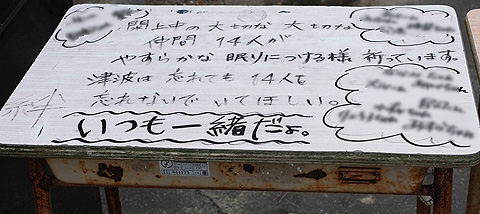 閖上中の大切な大切な
仲間14人が
やすらかな眠りにつける様祈っています。
津波は忘れても14人を
忘れないでいてほしい。
いつも一緒だよ。